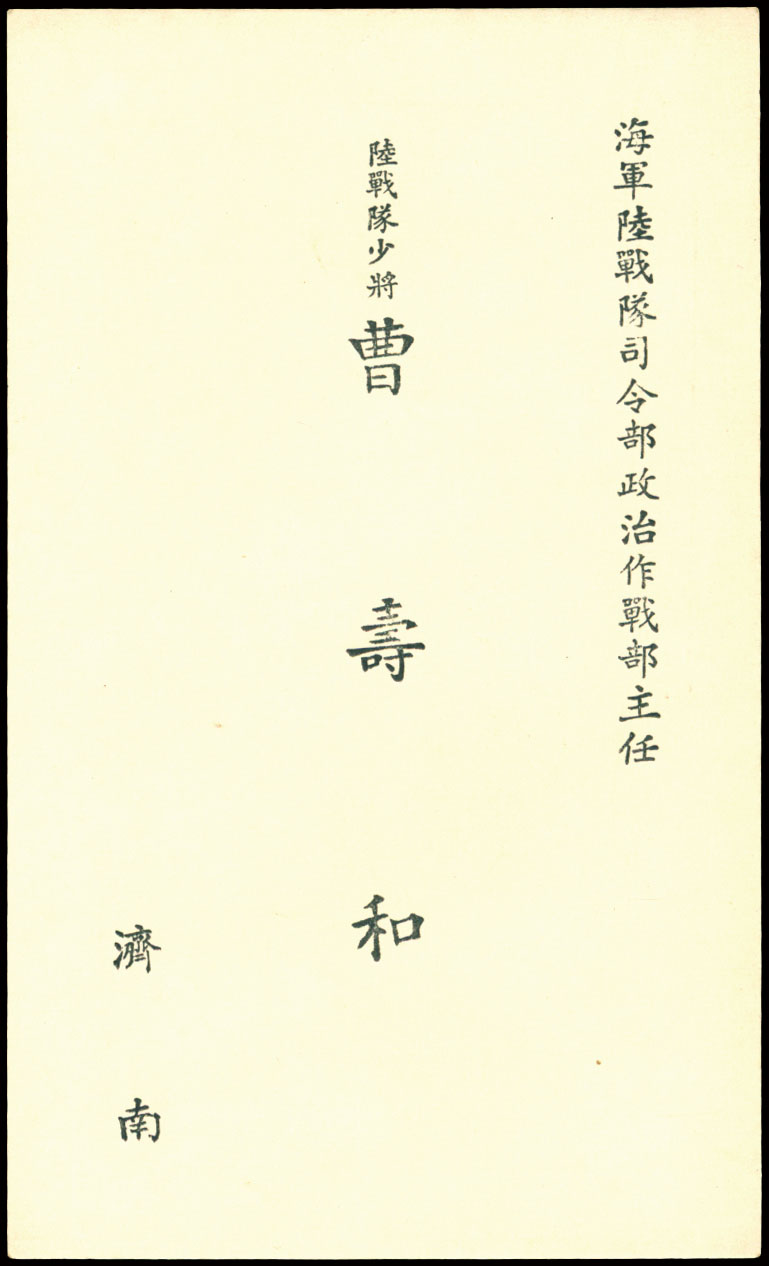 海軍陸戰隊司令部政治作戰部主任
陸戰隊少將 曹壽和
濟南